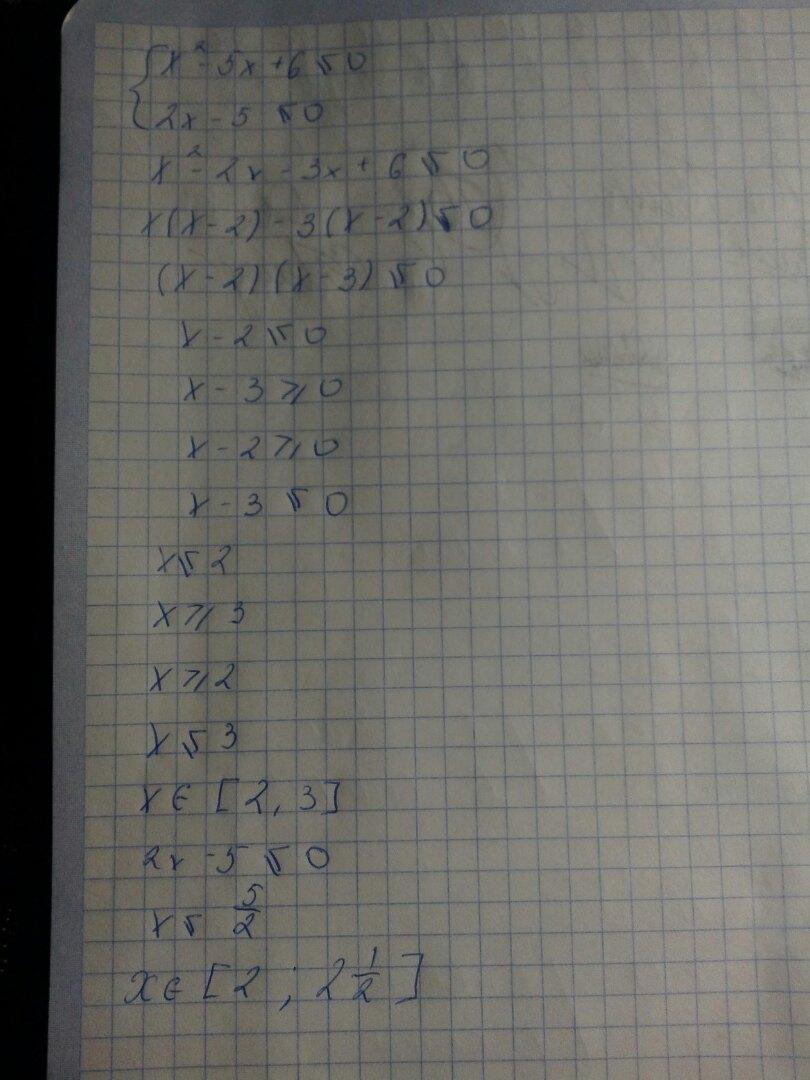 { x² - 5x + 6 ≤ 0
2x - 5 ≤ 0
x² - 2x - 3x + 6 ≤ 0
x(x - 2) - 3(x - 2) ≤ 0
(x - 2)(x - 3) ≤ 0
x - 2 ≤ 0
x - 3 ≥ 0
x - 2 ≥ 0
x - 3 ≤ 0
x ≤ 2
x ≥ 3
x ≥ 2
x ≤ 3
x ∈ [2, 3]
2x - 5 ≤ 0
x ≤ 5/2
x ∈ [2 ; 2 1/2]